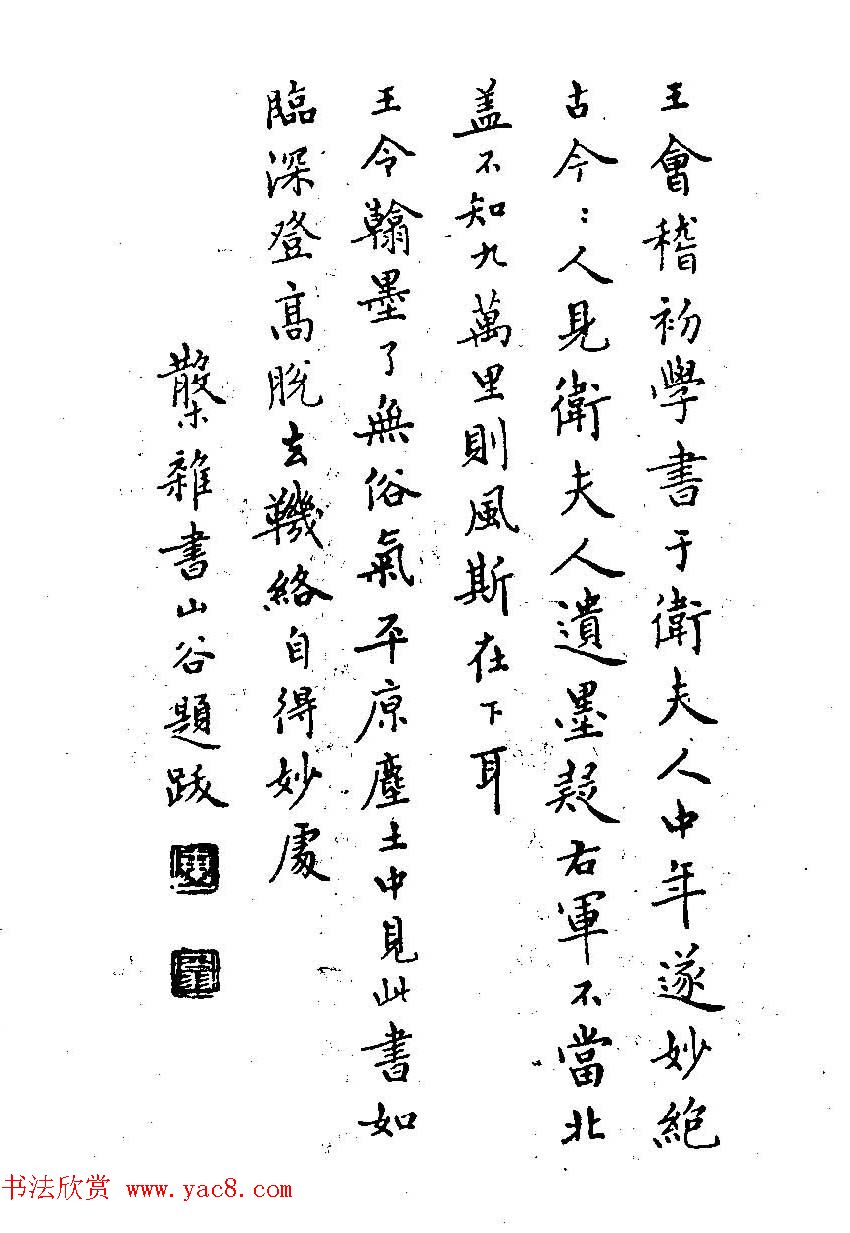 王會稽初學書于衛夫人中年遂妙絕
古今：人見衛夫人遺墨疑右軍不當北
盖不知九萬里則風斯在下耳
王令翰墨了無俗氣平原塵土中見此書如
臨深登高脫去鞿絡自得妙處
雜書山谷題跋
书法欣赏 www.yac8.com